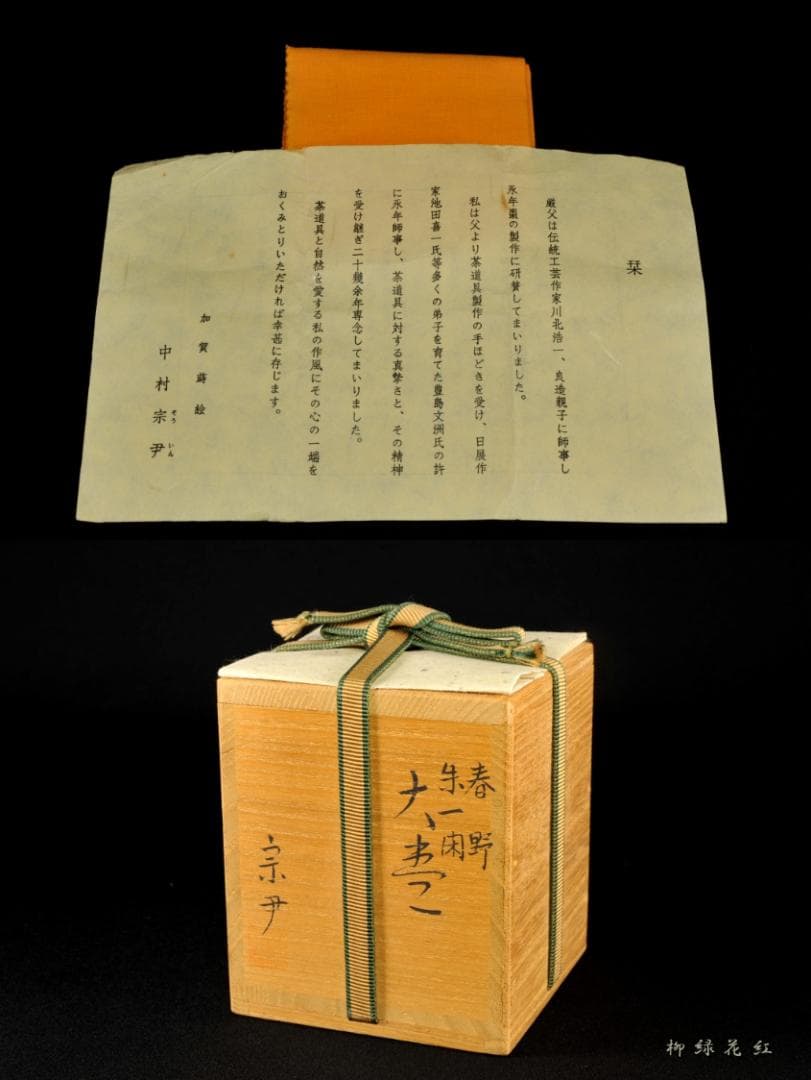 栞
厳父は伝統工芸作家川北浩一、良造親子に師事し
永年棗の製作に研鑽してまいりました。
私は父より茶道具製作の手ほどきを受け、日展作
家池田喜一氏等多くの弟子を育てた豊島文洲氏の許
に永年師事し、茶道具に対する真摯さと、その精神
を受け継ぎ二十幾余年専念してまいりました。
茶道具と自然を愛する私の作風にその心の一端を
おくみとりいただければ幸甚に存じます。
加賀蒔絵
中村宗尹
ぞういん
春野
朱一閑
大棗
宗尹
柳緑花紅